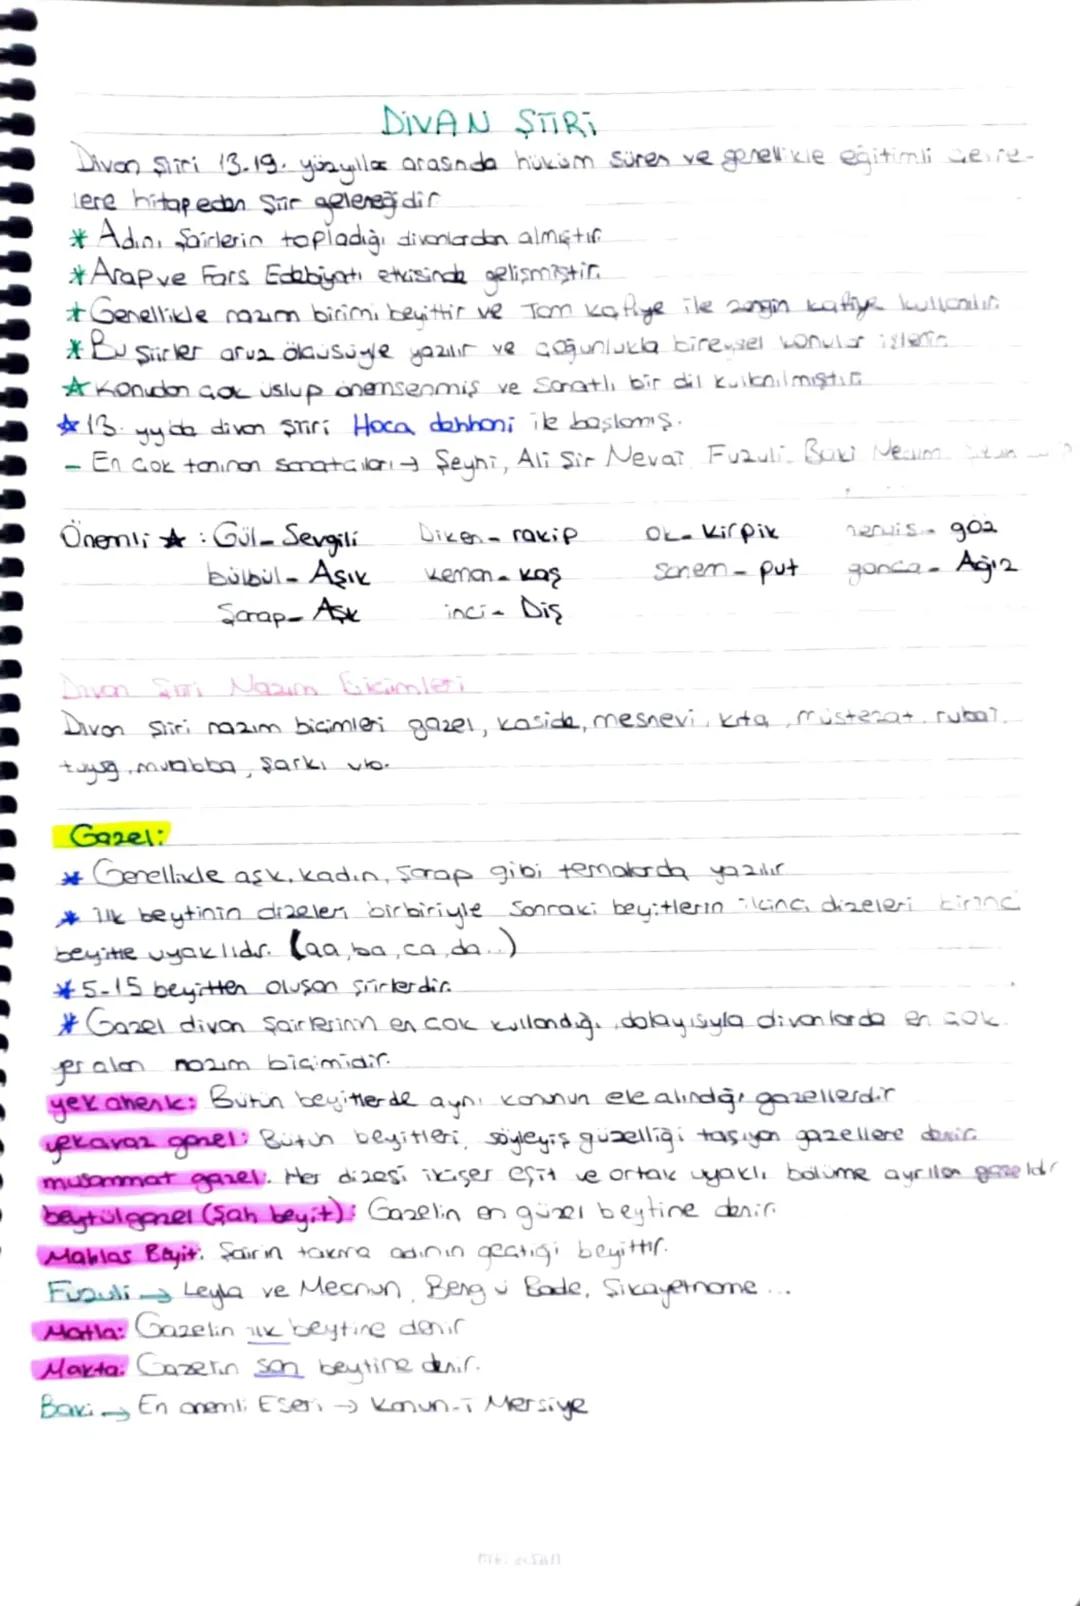 DİVAN ŞİİRİ
Divan Şiiri 13.19. yüzyıllar arasında hüküm süren ve genellikle eğitimli çevre-
lere hitap eden Şiir geleneğidir
* Adını Şairlerin topladığı divanlardan almıştır.
* Arap ve Fars Edebiyatı etkisinde gelişmiştir.
* Genellikle nazım birimi beyittir ve Tam kafiye ile zengin kafiye kullanılır.
* Bu Şiirler aruz ölçüsüyle yazılır ve çoğunlukla bireysel konular işlenir
* Konudan çok üslup önemsenmiş ve Sanatlı bir dil kullanılmıştır.
* 13. yy'da divan Şiiri Hoca dehhani ile başlamış.
- En çok tanınan sanatçıları → Şeyhi, Ali Şir Nevai Fuzuli Baki Nedim
Önemli ☆ : Gül - Sevgili Diken - rakip Ok - Kirpik nergis - göz
bülbül - Aşık keman - kaş Sanem - put gonca - Ağız
Şarap - Aşk inci - Diş
Divan Şiiri Nazım Biçimleri
Divan Şiiri nazım biçimleri gazel, kaside, mesnevi, kıta, müstezat, rubai,
tuyug, murabba, Şarkı vb.
Gazel:
* Genellikle aşk, kadın, Şarap gibi temalarda yazılır
* ilk beytinin dizeleri birbiriyle Sonraki beyitlerin ikinci dizeleri birinci
beyitle uyaklıdır. (aa, ba, ca, da..)
* 5-15 beyitten oluşan Şiirlerdir.
* Gazel divan Şairlerinin en çok kullandığı, dolayısıyla divanlarda en çok
yer alan nazım biçimidir.
yek ahenk: Bütün beyitlerde aynı konunun ele alındığı gazellerdir
yekavaz gazel: Bütün beyitleri, söyleyiş güzelliği taşıyan gazellere denir.
musammat gazel: Her dizesi ikişer eşit ve ortak uyaklı bölüme ayrılan gazeldir
beytülgazel (Şah beyit): Gazelin en güzel beytine denir.
Mahlas Beyit: Şairin takma adının geçtiği beyittir.
Fuzuli → Leyla ve Mecnun, Beng ü Bade, Şikayetname ...
Matla: Gazelin ilk beytine denir
Makta: Gazelin son beytine denir.
Baki → En önemli Eseri → Kanun-i Mersiye